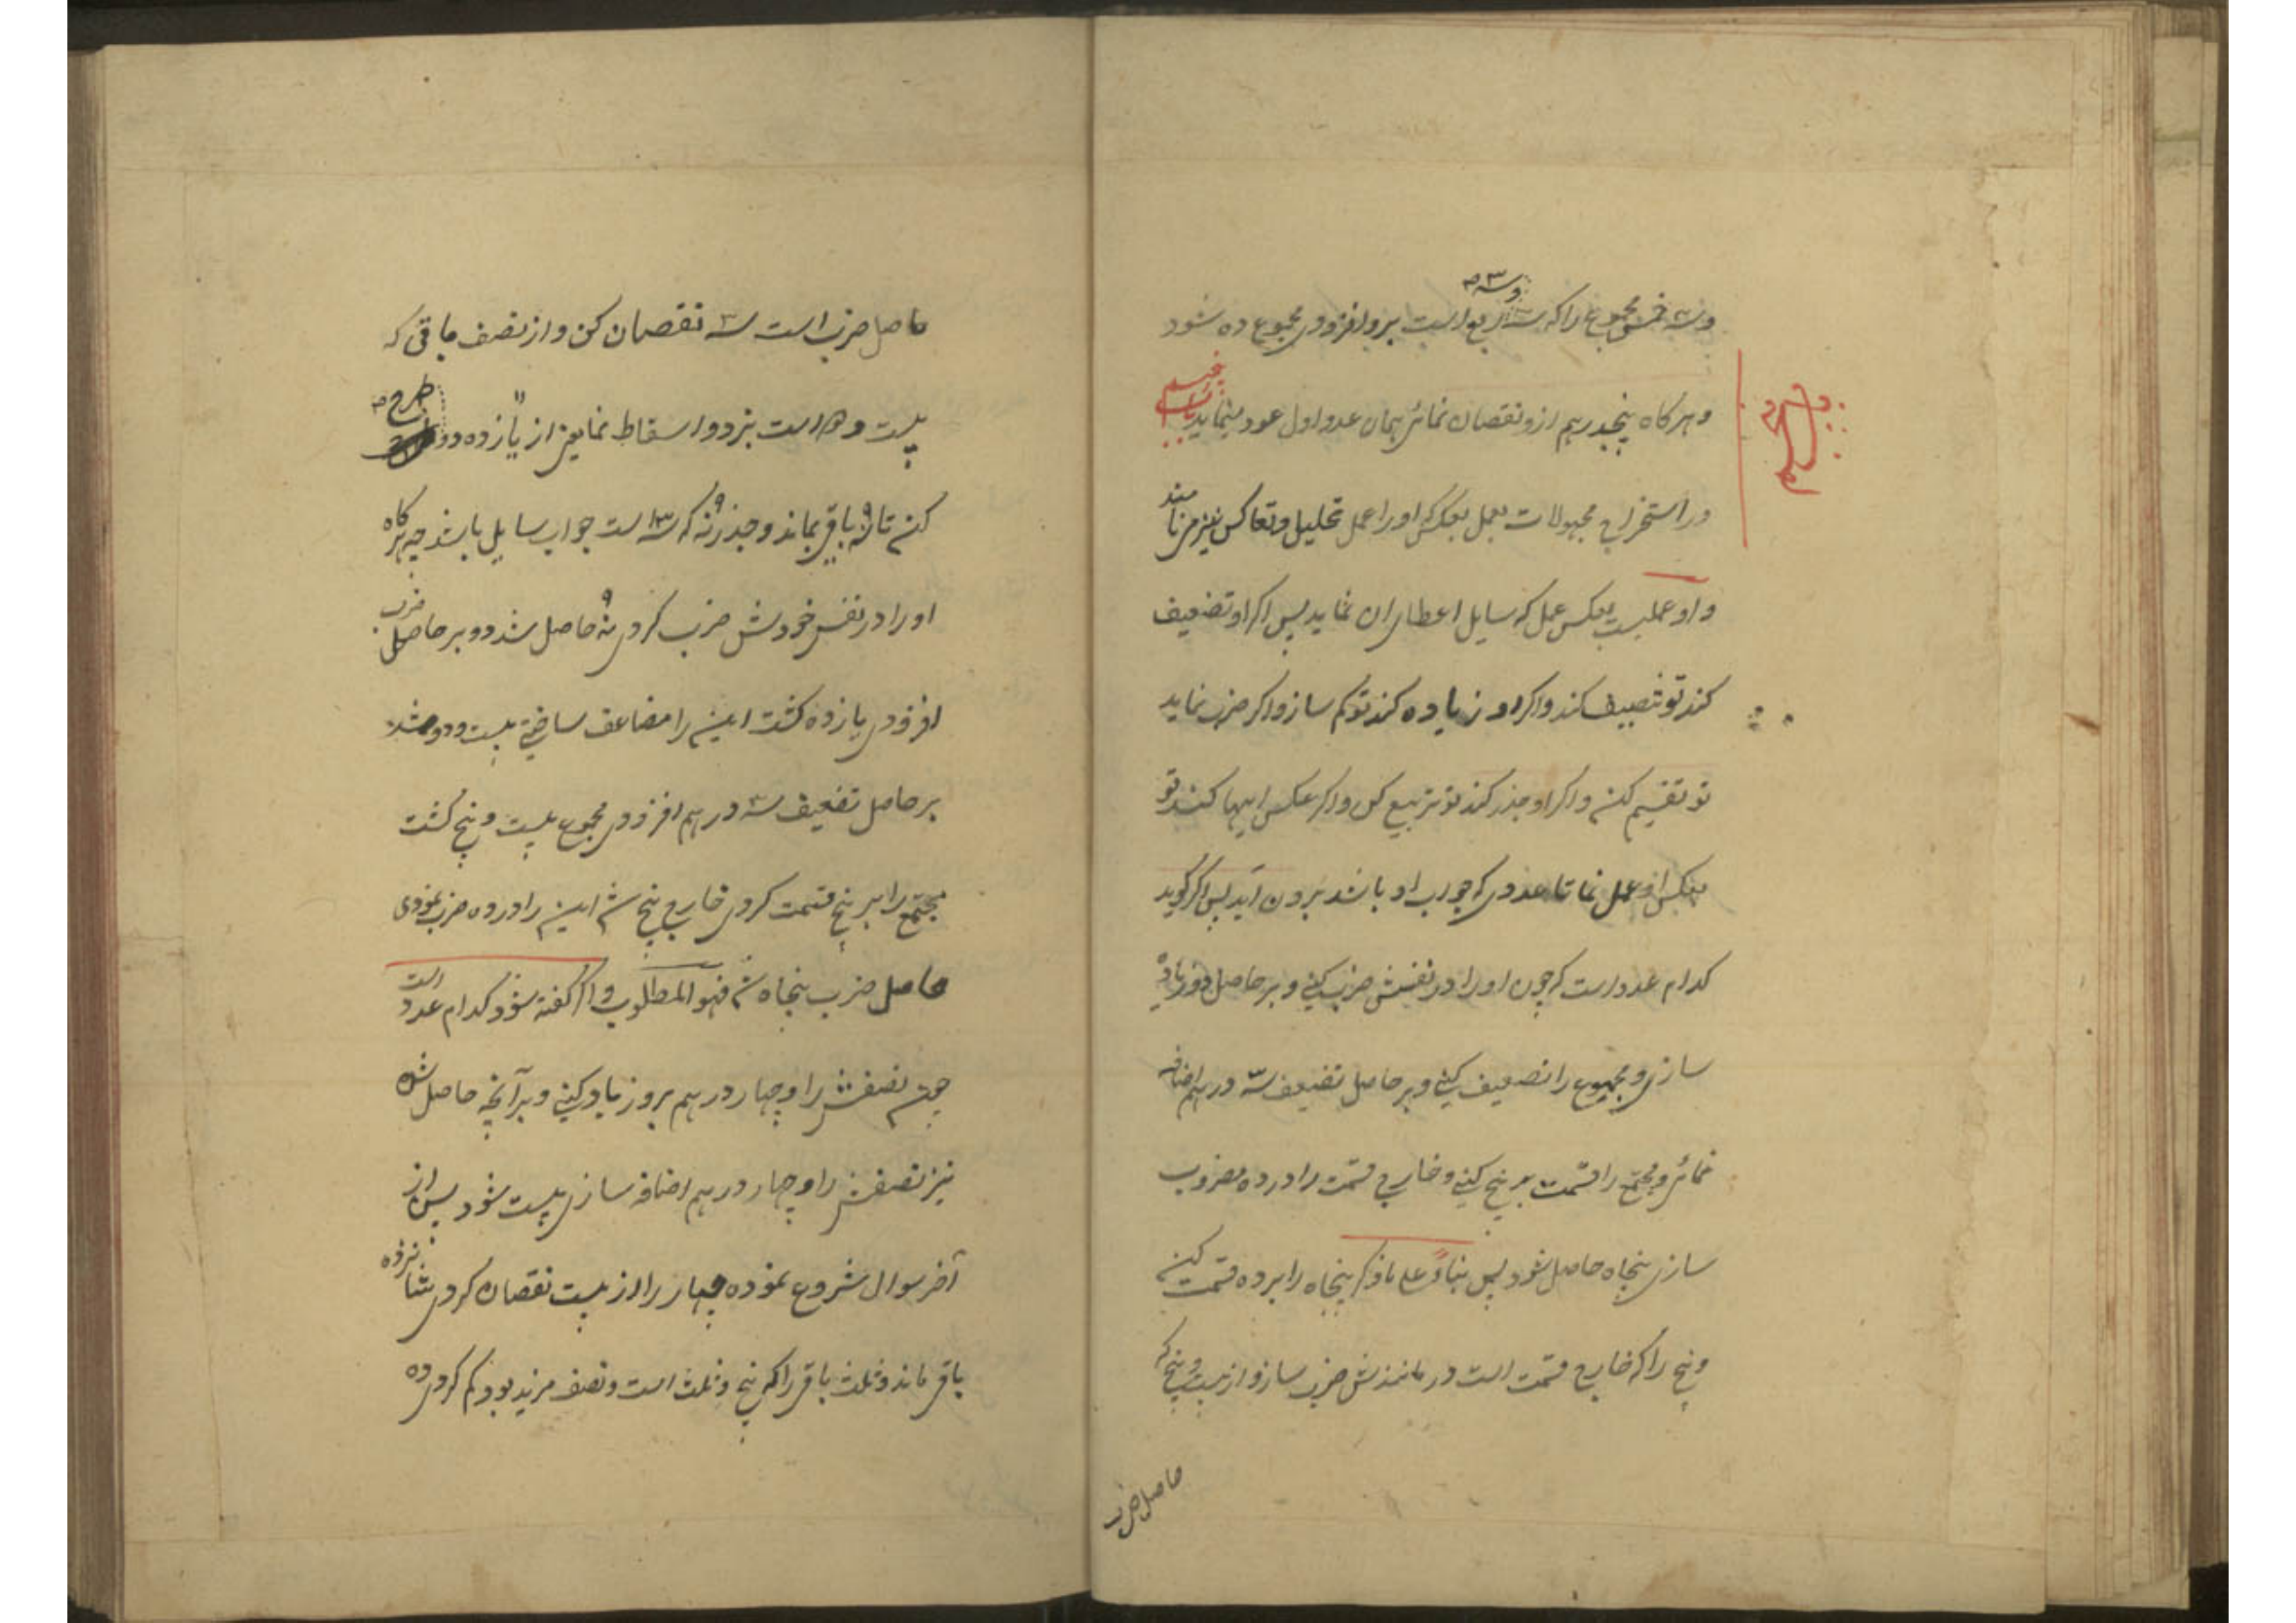 وسه خمس مجموع را که سه ربع است برو افزودی مجموع ده شود
وسه ۳ صح
وهرکاه پنجدرهم ازو نقصان نمائی همان عدد اول عود مینماید باب پنجم
در استخراج مجهولات بعمل بعکس او را عمل تحلیل و تعاکس نیز می نامند
و او عملیست بعکس عمل که سایل اعطای ان نماید پس اکر او تضعیف
کند تو تنصیف کند و اکر او زیاده کند تو کم ساز و اکر ضرب نماید
تو تقسیم کن و اکر او جذر کند تو تربیع کن و اکر عکس اینها کند تو
بعکس او عمل نما تا عددی که جواب او باشد برون آید پس اکر کوید
کدام عدد است که چون او را در نفسش ضرب کنی و بر حاصل دو زیاده
سازی و مجموع را تضعیف کنی و بر حاصل تضعیف سه درهم اضافه
نمائی و مجتمع را قسمت بر پنج کنی و خارج قسمت را در ده مضروب
سازی پنجاه حاصل شود پس بناءً علی ما ذکر پنجاه را بر ده قسمت کن
و پنج را که خارج قسمت است در مانندش ضرب ساز و از بیست و پنج که
حاصل ضرب
حاصل ضرب است سه نقصان کن و از نصف ماقی که
بیست و دو است بزدو اسقاط نما یعنی از یازده دو طرح صح
کن تا نه باقی بماند و جذر نه که سه است جواب سایل باشد چه هرکاه
او را در نفس خودش ضرب کردی نه حاصل شد دو بر حاصل ضرب
افزودی یازده کشت این را مضاعف ساختی بیست و دو شد
بر حاصل تضعیف سه درهم افزودی مجموع بیست و پنج کشت
مجتمع را بر پنج قسمت کردی خارج پنج شد این را در ده ضرب نمودی
حاصل ضرب پنجاه شد فهو المطلوب و اکر کفته شود کدام عدد است
چون نصفش را و چهار درهم برو زیاد کنی و بر آنچه حاصل شود
نیز نصفش را و چهار درهم اضافه سازی بیست شود پس از
آخر سوال شروع نموده چهار را از بیست نقصان کردی شانزده
باقی ماند و ثلث باقی را که پنج و ثلث است و نصف مزید بود کم کردی ده